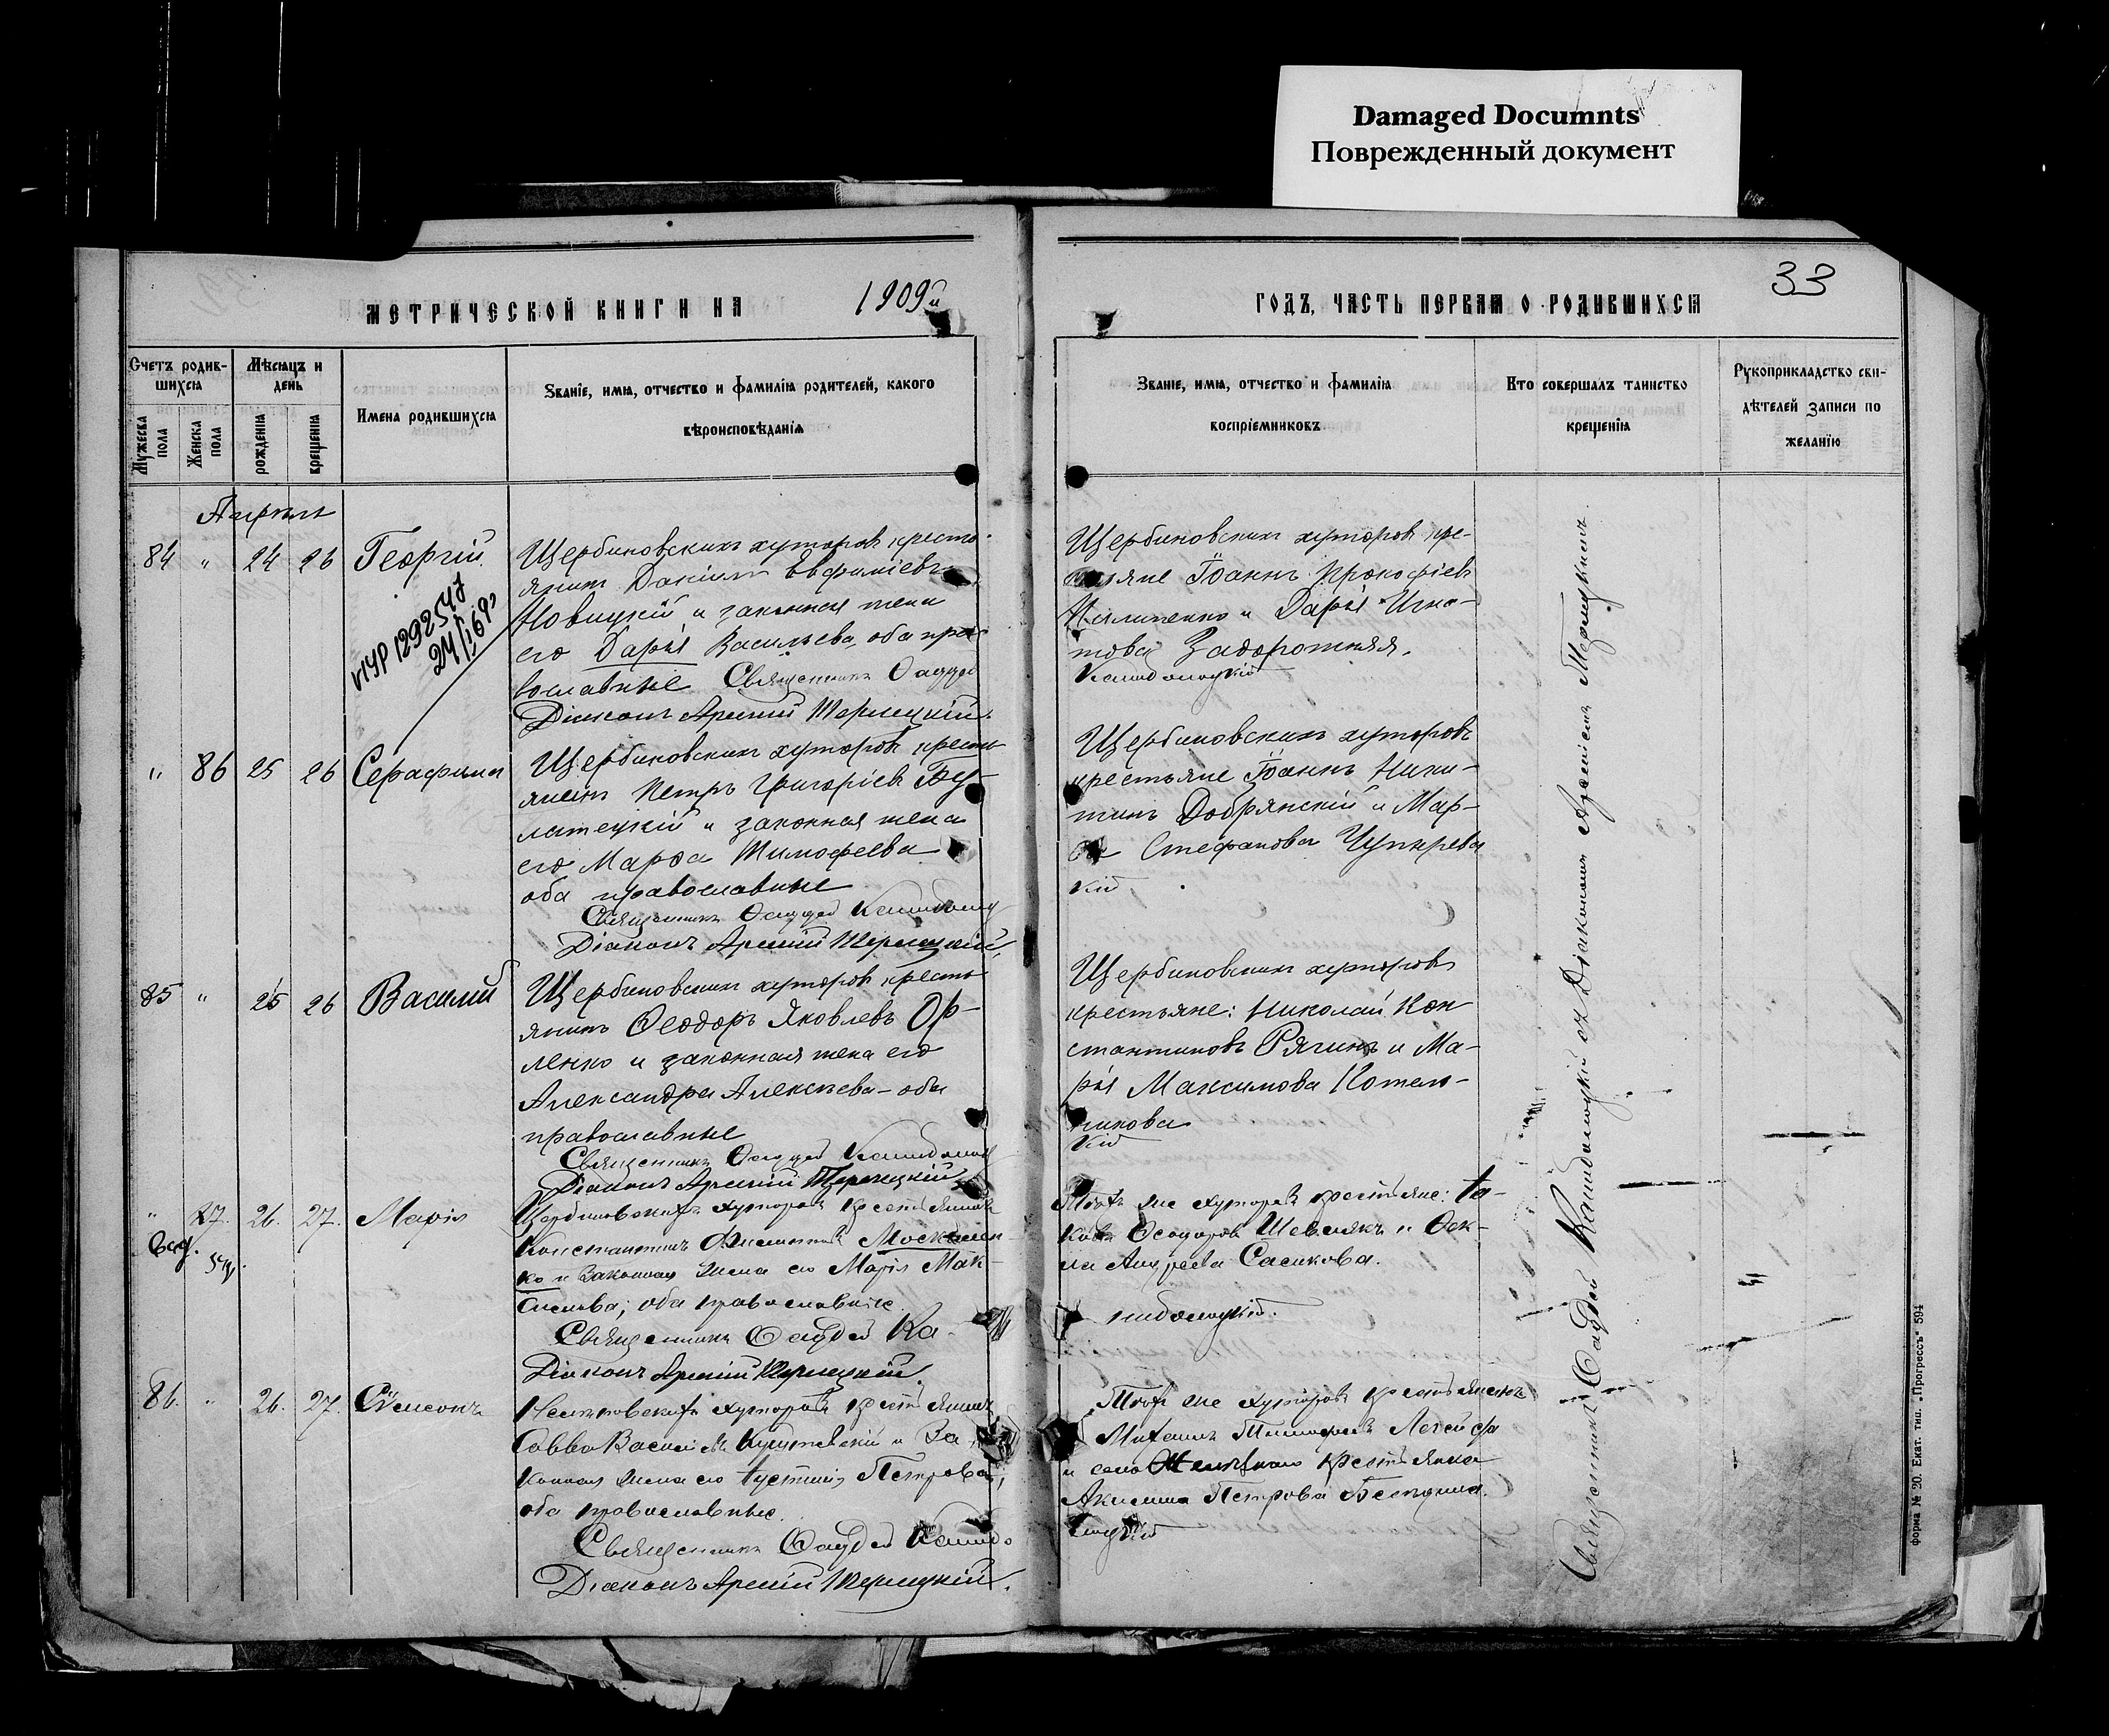 Damaged Documnts
Поврежденный документ
33
МЕТРИЧЕСКОЙ КНИГИ НА 1909й ГОДЪ, ЧАСТЬ ПЕРВАЯ О РОДИВШИХСЯ
Счетъ родив-
шихся
Мужеска
пола
Женска
пола
Мѣсяцъ и
день
рожденія
крещенія
Имена родившихся
Званіе, имя, отчество и фамилія родителей, какого
вѣроисповѣданія
Званіе, имя, отчество и фамилія
воспріемниковъ
Кто совершалъ таинство
крещенія
Рукоприкладство сви-
дѣтелей записи по
желанію
Апрѣль
84 " 24 26 Георгій
1292547
Щербиновскихъ хуторовъ кресть-
янинъ Даніилъ Евфиміевъ
Новицкій и законная жена
его Дарья Васильева, оба пра-
вославные Священникъ Фаддей
Діаконъ Арсеній Терлецкій
Щербиновскихъ хуторовъ кре-
стьяне Іоаннъ Прокофіевъ
и Дарья Игна-
това Задорожняя.
" 86 25 26 Серафима
Щербиновскихъ хуторовъ кресть-
янинъ Петръ Григоріевъ Бу-
латецкій и законная жена
его Марфа Тимофеева
оба православные
Священникъ Фаддей
Діаконъ Арсеній Терлецкій
Щербиновскихъ хуторовъ
крестьяне Іоаннъ Ники-
тинъ Добрянскій и Мар-
фа Стефанова
кій
85 " 25 26 Василій
Щербиновскихъ хуторовъ кресть-
янинъ Феодоръ Яковлевъ Ор-
ленко и законная жена его
Александра Алексѣева - оба
православные
Священникъ Фаддей
Діаконъ Арсеній Терлецкій
Щербиновскихъ хуторовъ
крестьяне: Николай Кон
стантиновъ Рягинъ и Ма-
рья Максимова Котель-
никова
кій
" 87. 26. 27. Марія
Щербиновскихъ хуторовъ крестьянинъ
Константинъ Филипповъ Москален-
ко и законная жена его Марія Мак-
симова; оба православные.
Священникъ Фаддей Ка-
Діаконъ Арсеній Терлецкій.
Тѣхъ же хуторовъ крестьяне: Іа-
ковъ Феодоровъ Шевлякъ и Фек-
ла Андреева Сасикова.
86. " 26. 27. Сѵмеонъ
хуторовъ крестьянинъ
Савва Васильевъ и за
конная жена его Іустинія Петрова,
оба православные.
Священникъ Фаддей
Діаконъ Арсеній Терлецкій.
Тѣхъ же хуторовъ крестьянинъ
Михаилъ Тимофеевъ
и села крестьянка
Акилина Петрова
Священникъ Фаддей съ Діакономъ Арсеніемъ Терлецкимъ.
Форма № 20. Екат. тип. „Прогрессъ" 594